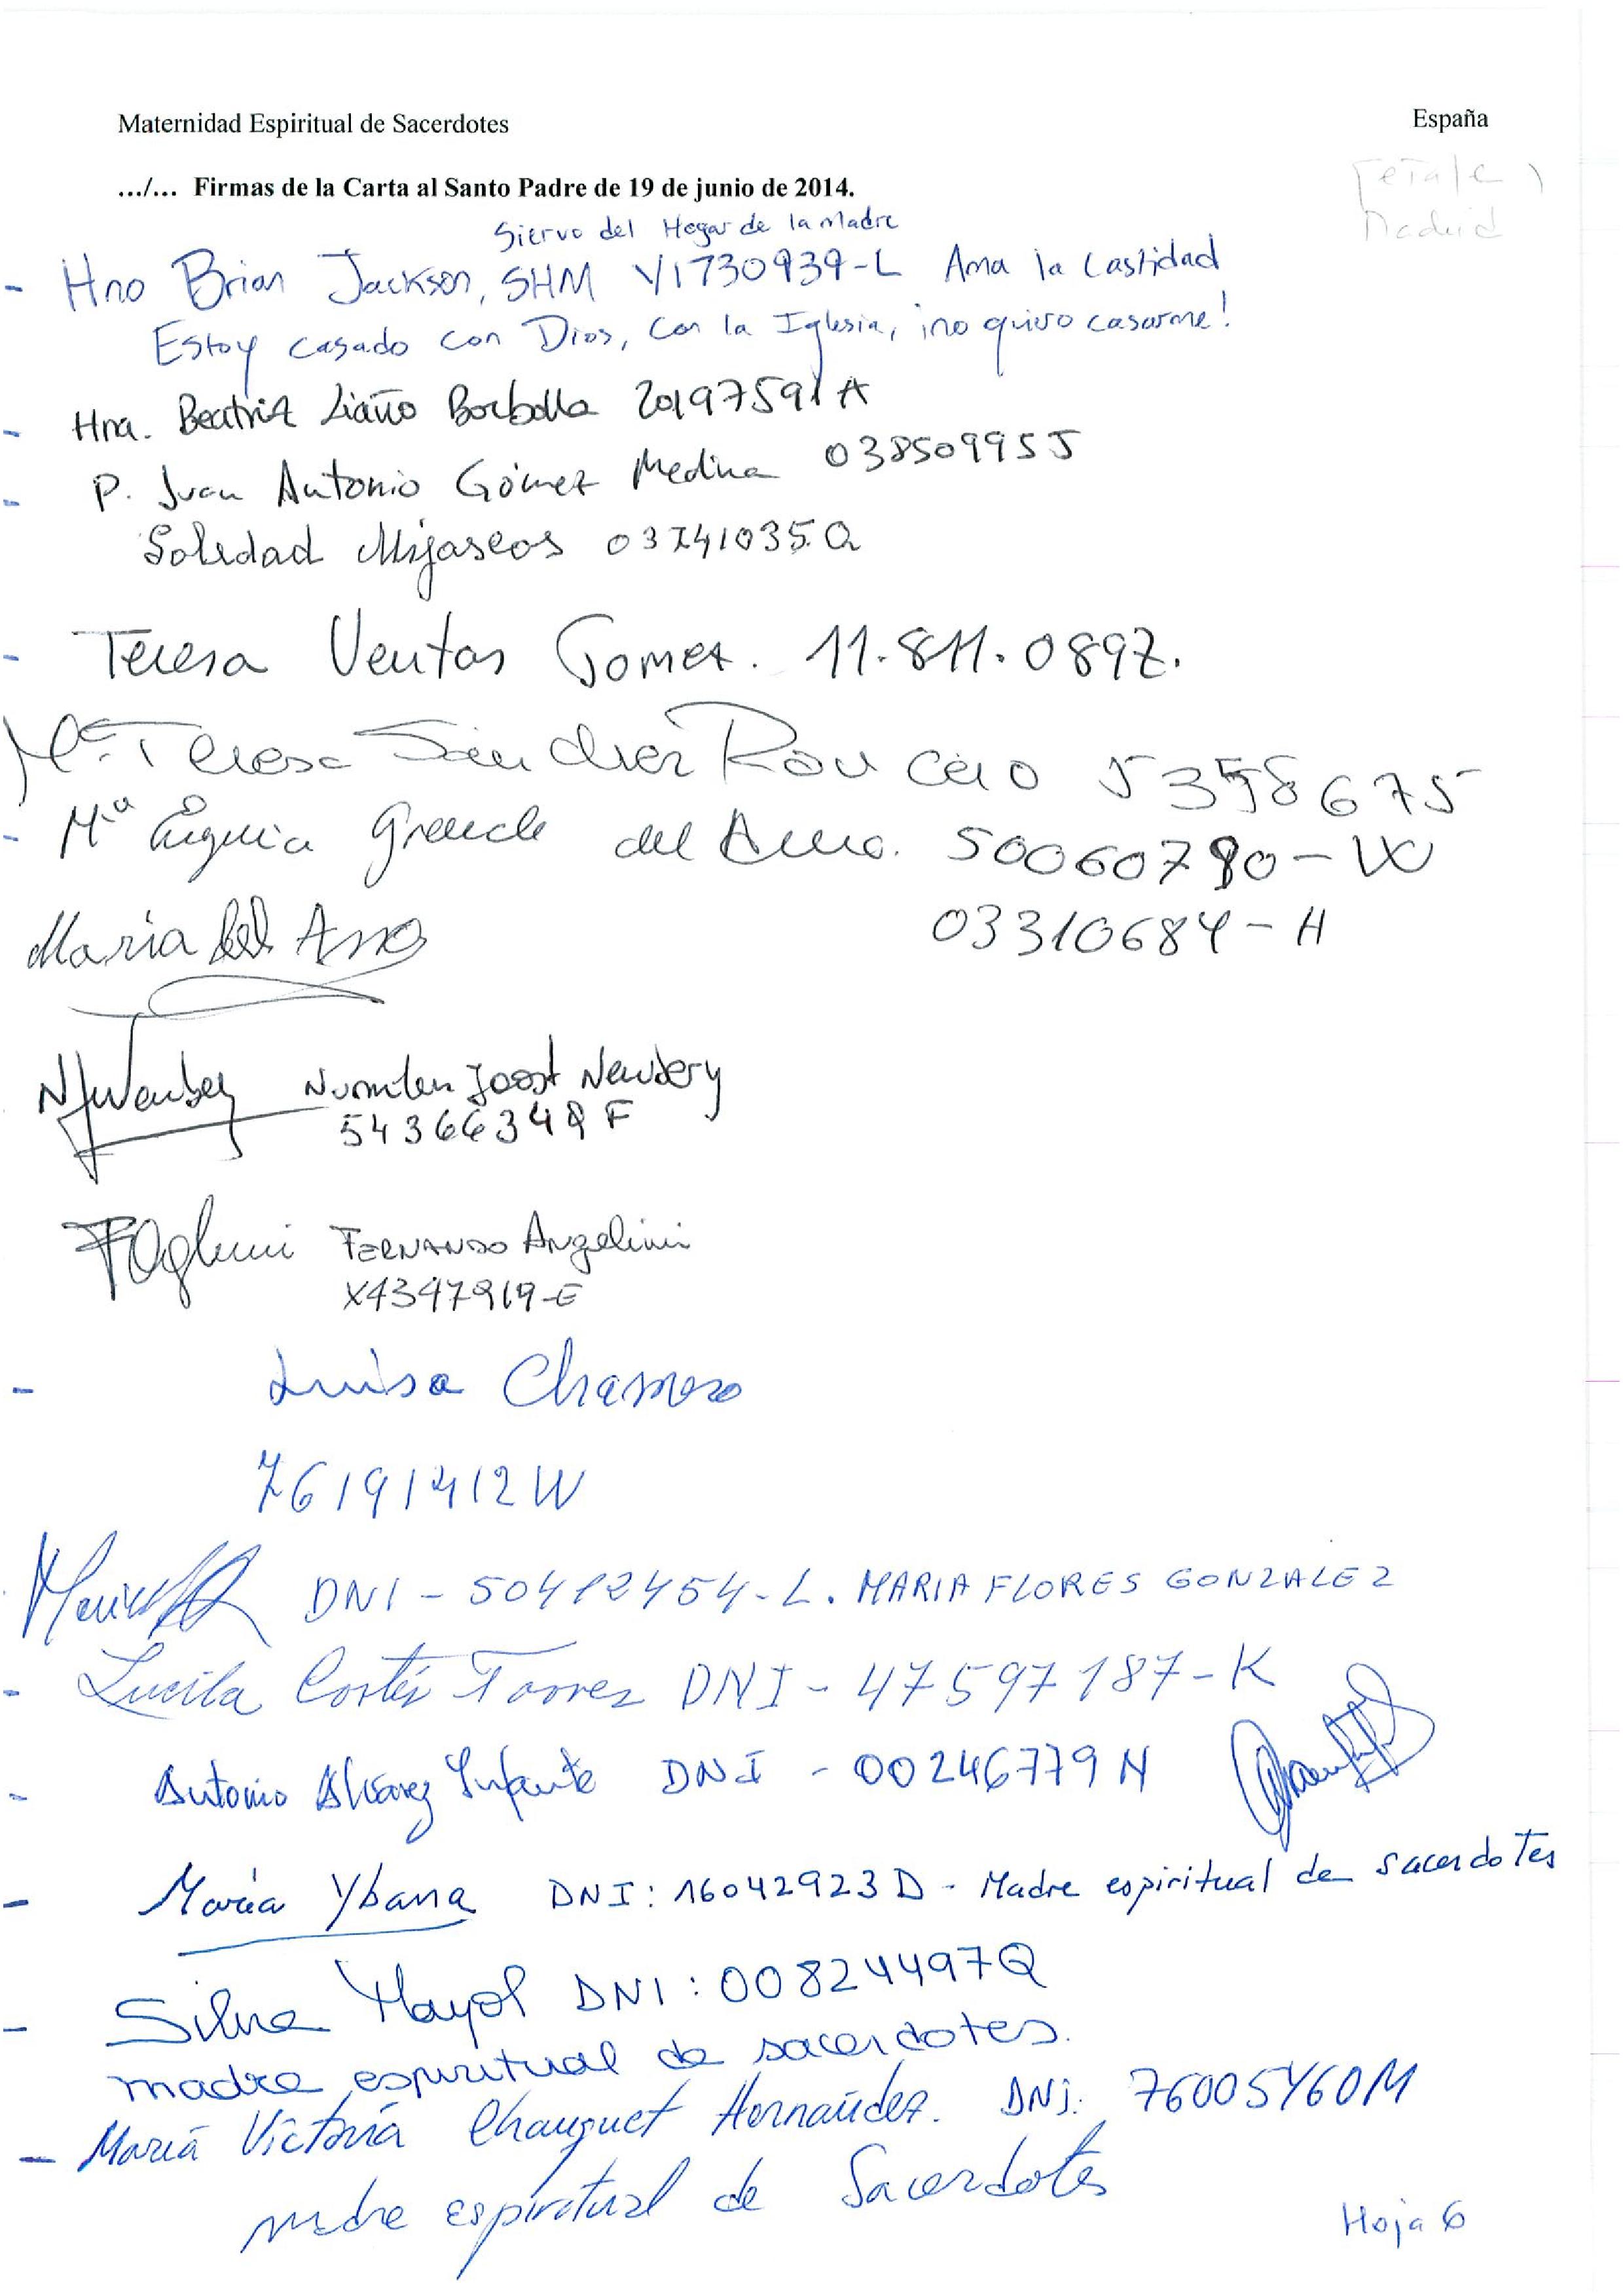 Maternidad Espiritual de Sacerdotes España
.../... Firmas de la Carta al Santo Padre de 19 de junio de 2014.
Madrid
Siervo del Hogar de la Madre
- Hno Brian Jackson, SHM Y1730939-L Ama la Castidad
Estoy casado con Dios, con la Iglesia, ¡no quiero casarme!
- Hna. Beatriz Liaño Borbolla 20197591A
- P. Juan Antonio Gómez Medina 03850995J
Soledad Mijascos 03741035Q
- Teresa Ventas Gomez. 11.811.089Z.
Mª Teresa Sánchez Roncero 5358675
- Mª Eugenia Grande del Amo. 50060780-W
María del Amo 03310684-H
Joost Newbery
54366348F
Fernando Angelini
X4347919-E
- Luisa Chamorro
76191412W
DNI-50412454-L. MARIA FLORES GONZALEZ
- Lucila Cortés Torres DNI-47597187-K
- Antonio Alvarez Infante DNI - 00246779N
- María Ybarra DNI: 16042923D - Madre espiritual de sacerdotes
- Silvia Mayol DNI: 00824497Q
madre espiritual de sacerdotes.
- María Victoria Chauquet Hernández. DNi. 76005460M
madre espiritual de Sacerdotes
Hoja 6